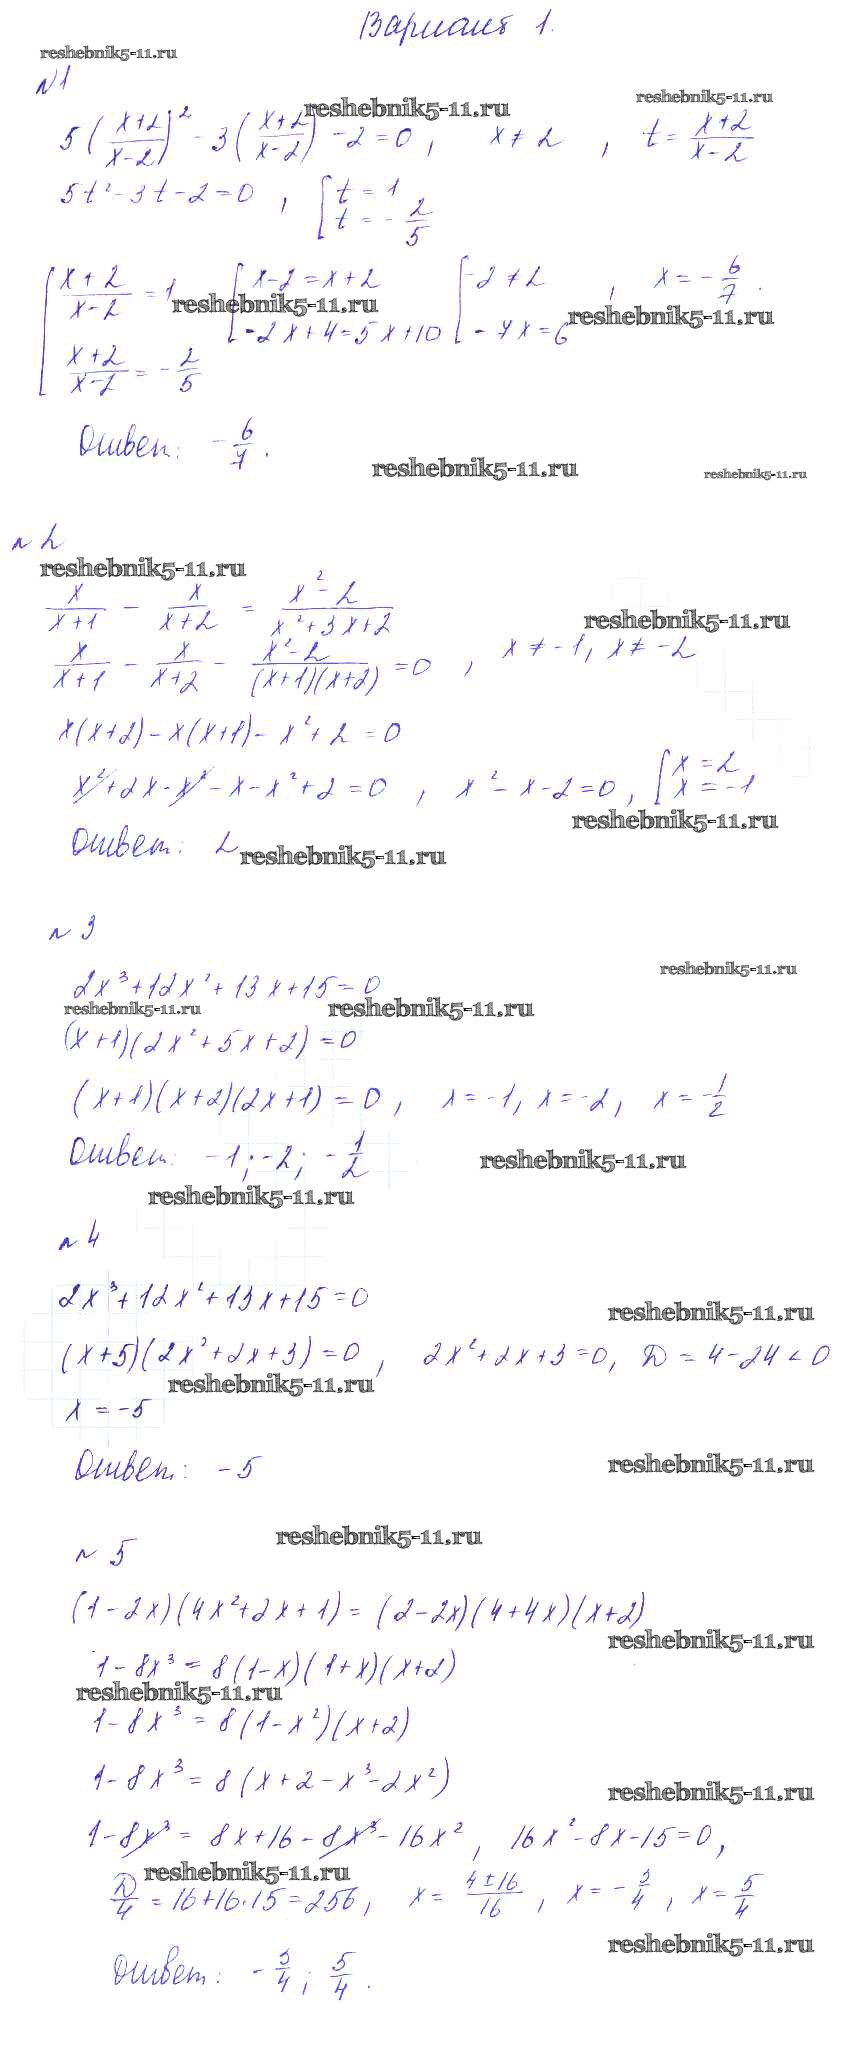 Вариант 1.
reshebnik5-11.ru
№1
reshebnik5-11.ru
reshebnik5-11.ru
5((x+2)/(x-2))² - 3((x+2)/(x-2)) - 2 = 0, x ≠ 2, t = (x+2)/(x-2)
5t² - 3t - 2 = 0, [t = 1
t = -2/5
[(x+2)/(x-2) = 1 [x-2 = x+2 [-2 ≠ 2, x = -6/7.
reshebnik5-11.ru
reshebnik5-11.ru
(x+2)/(x-2) = -2/5 -2x+4 = 5x+10 -7x = 6
Ответ: -6/7.
reshebnik5-11.ru
reshebnik5-11.ru
№2
reshebnik5-11.ru
x/(x+1) - x/(x+2) = (x²-2)/(x²+3x+2)
reshebnik5-11.ru
x/(x+1) - x/(x+2) - (x²-2)/((x+1)(x+2)) = 0, x ≠ -1, x ≠ -2
x(x+2) - x(x+1) - x² + 2 = 0
x² + 2x - x² - x - x² + 2 = 0, x² - x - 2 = 0, [x = 2
x = -1
reshebnik5-11.ru
Ответ: 2
reshebnik5-11.ru
№3
reshebnik5-11.ru
2x³ + 12x² + 13x + 15 = 0
reshebnik5-11.ru
reshebnik5-11.ru
(x+1)(2x²+5x+2) = 0
(x+1)(x+2)(2x+1) = 0, x = -1, x = -2, x = -1/2
Ответ: -1; -2; -1/2
reshebnik5-11.ru
reshebnik5-11.ru
№4
2x³ + 12x² + 13x + 15 = 0
reshebnik5-11.ru
(x+5)(2x²+2x+3) = 0, 2x²+2x+3 = 0, D = 4-24 < 0
reshebnik5-11.ru
x = -5
Ответ: -5
reshebnik5-11.ru
reshebnik5-11.ru
№5
(1-2x)(4x²+2x+1) = (2-2x)(4+4x)(x+2)
reshebnik5-11.ru
1-8x³ = 8(1-x)(1+x)(x+2)
reshebnik5-11.ru
1-8x³ = 8(1-x²)(x+2)
1-8x³ = 8(x+2-x³-2x²)
reshebnik5-11.ru
1-8x³ = 8x+16-8x³-16x², 16x²-8x-15 = 0,
reshebnik5-11.ru
D/4 = 16+16·15 = 256, x = (4±16)/16, x = -3/4, x = 5/4
reshebnik5-11.ru
Ответ: -3/4; 5/4.